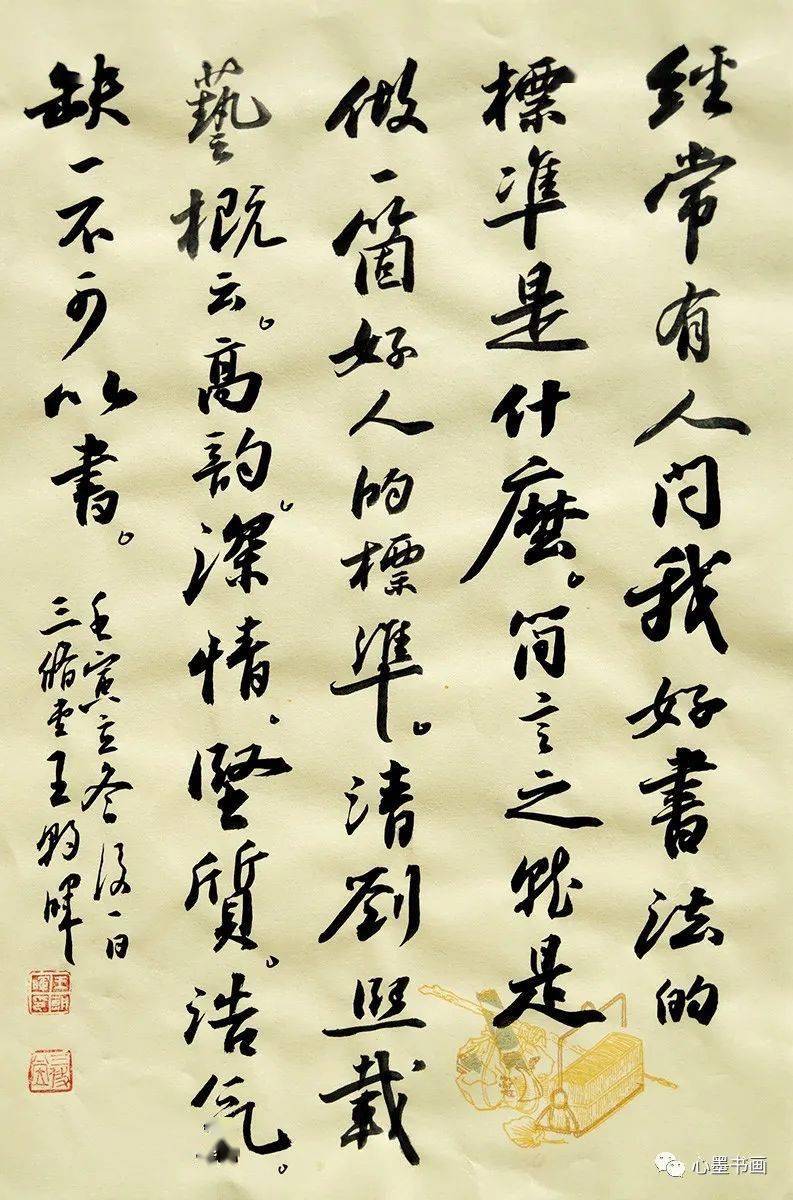 經常有人问我好書法的
標準是什麼。简言之就是
做一箇好人的標準。清劉熙載
藝概云。高韵。深情、堅質。浩气。
缺一不可以書。
壬寅立冬後一日
三脩 王明暉
心墨书画